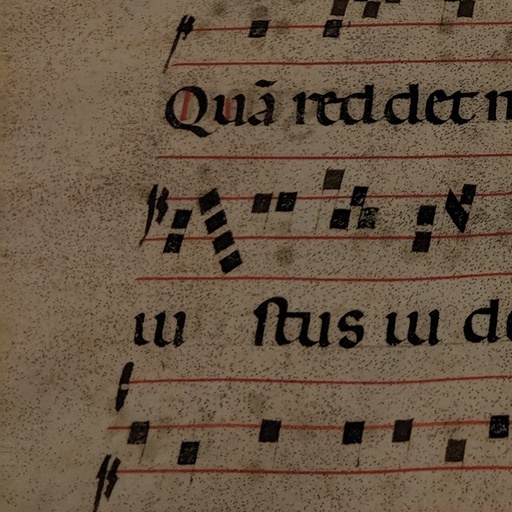 Quã red det
iu ſtus iu de